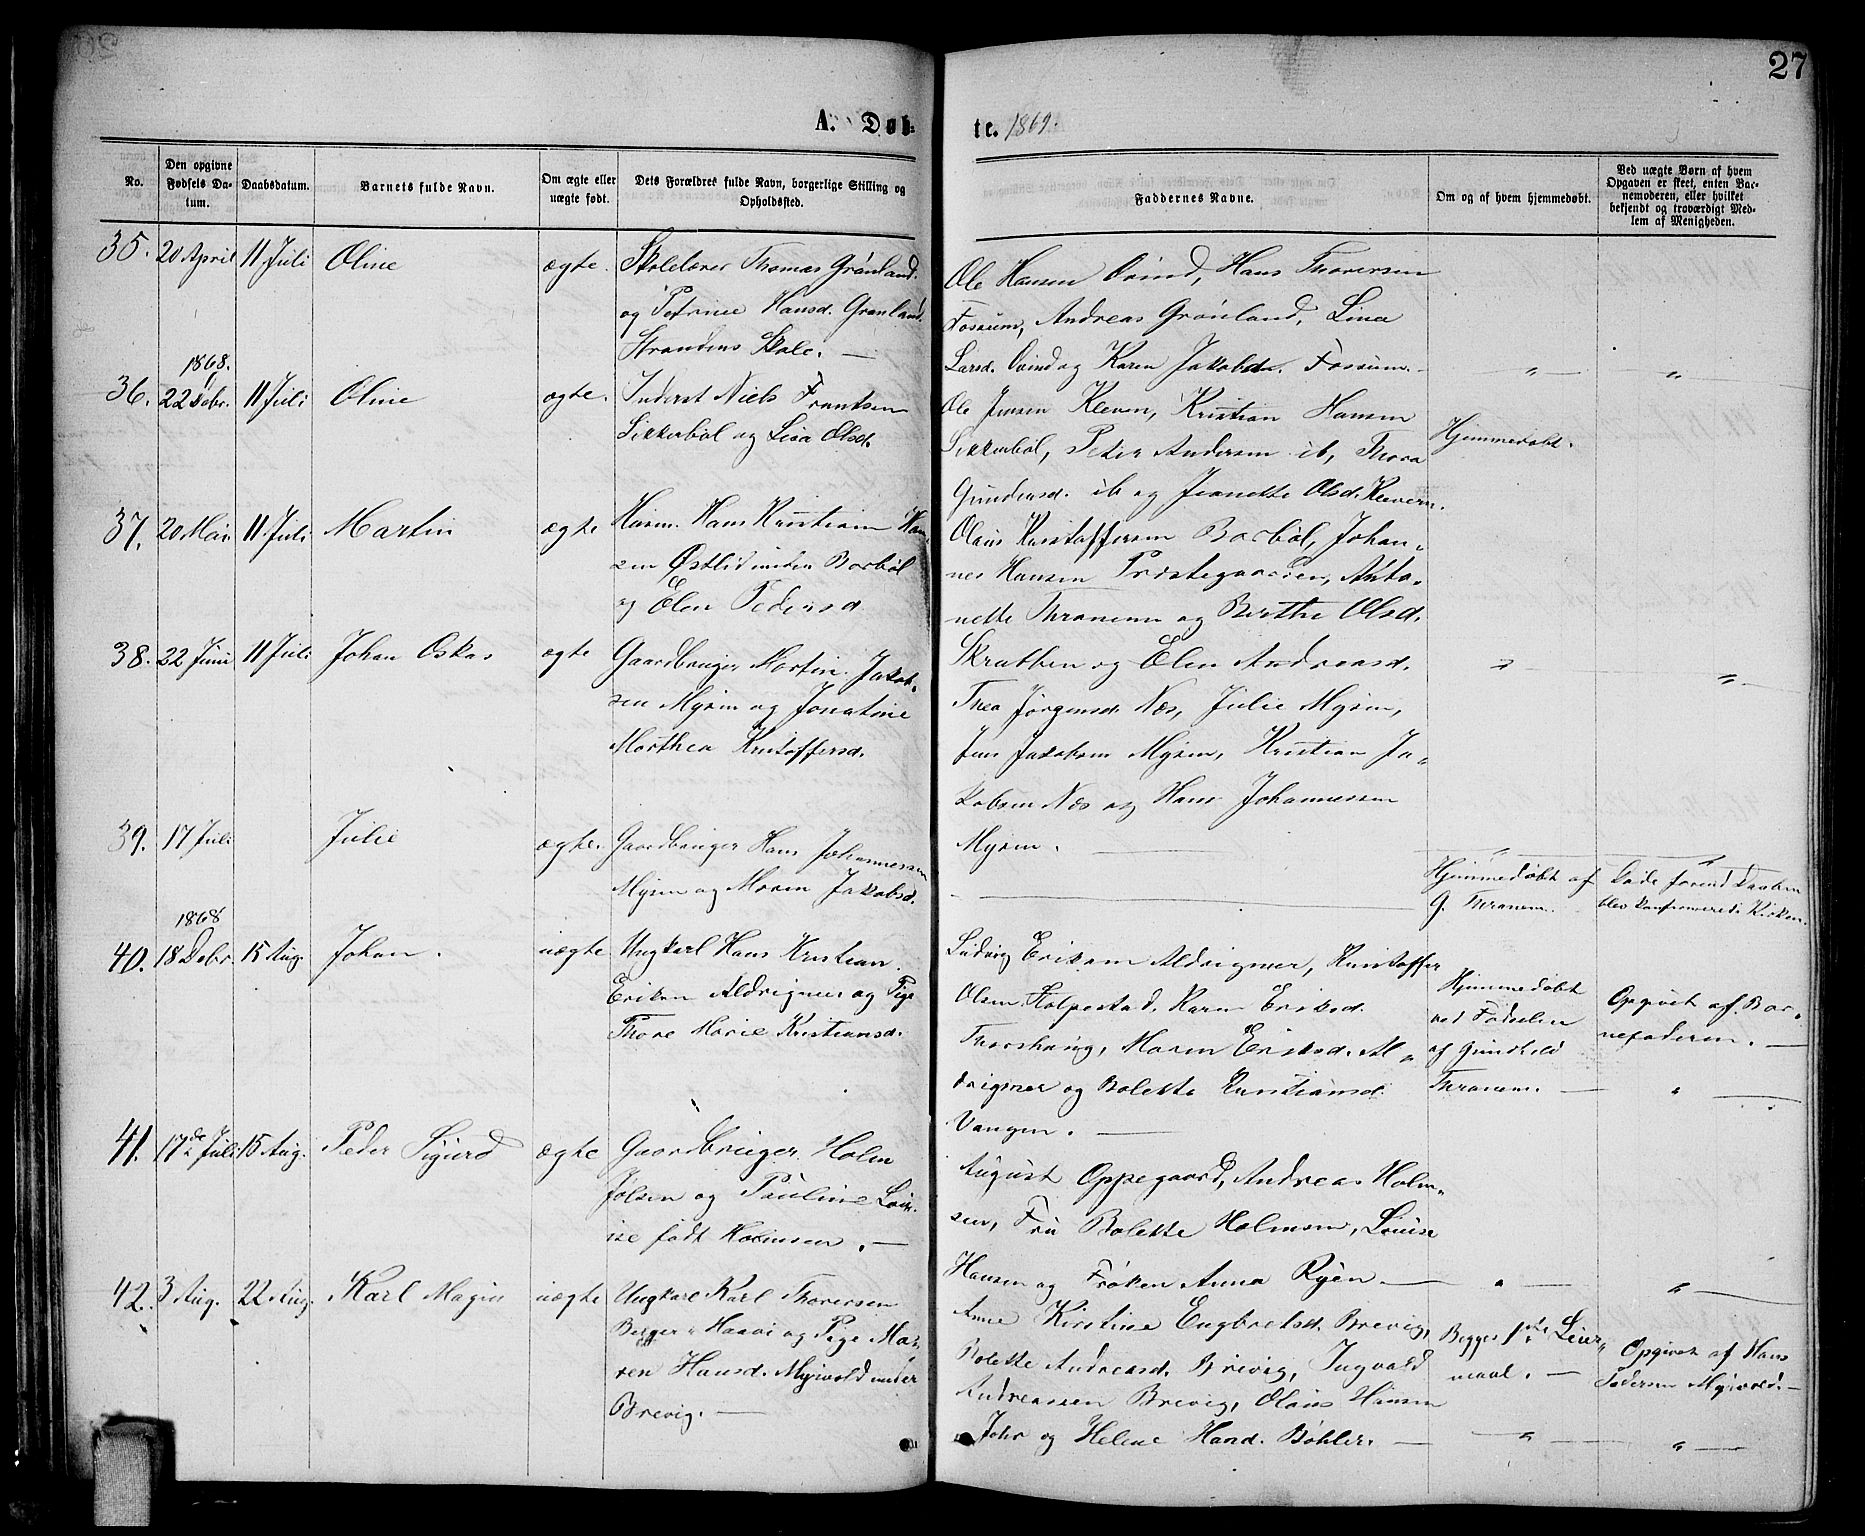 27
A. Døb-
te. 1869.
No.
Den opgivne Fødsels Da-
tum.
Daabsdatum.
Barnets fulde Navn.
Om ægte eller
uægte født.
Dets Forældres fulde Navn, borgerlige Stilling og
Opholdssted.
Faddernes Navne.
Om og af hvem hjemmedøbt.
Ved uægte Børn af hvem
Opgaven er skeet, enten Bar-
nemoderen, eller hvilket
bekjendt og troværdigt Med-
lem af Menigheden.
35. 20 April 11 Juli Oline ægte. Skolelærer Thomas Grønland
og Petrine Hansd. Grønland
Strandens Skole. —
Ole Hansen Ovind, Hans Thoresen
Fossum, Andreas Grønland, Lina
Larsd. Ovind og Karen Jakobd. Fossum. — " — " —
1868.
36. 22 Debr. 11 Juli Oline ægte. Inderst Niels Frantsen
Sikkerbøl og Lisa Olsd.
Ole Jensen Kleven, Kristian Hansen
Sikkerbøl, Peter Andersen ib, Thora
Gundersd. ib og Jeanette Olsd. Kleven.
Hjemmedøbt.
37. 20 Mai 11 Juli Martin ægte Husm. Hans Kristian Han-
sen Østlid under Borbøl
og Elen Pedersd
Olaus Kristoffersen Borbøl, Johan-
nes Hansen Præstegaarden, Anto-
nette Thranem og Berthe Olsd.
38. 22 Juni 11 Juli Johan Oskar ægte Gaardbruger Martin Jakob-
sen Mysen og Jonatine
Marthea Kristoffersd.
Skrabben og Elen Andreasd.
Thea Jørgensd. Næs, Julie Mysen,
Jens Jakobsen Mysen, Kristian Ja-
kobsen Næs og Hans Johannessen
Mysen. —
39. 17 Juli Julie ægte. Gaardbruger Hans Johannessen
Mysen og Maren Jakobsd.
Hjemmedøbt af
G. Thranem.
Døde forend Daaben
blev konfirmeret i Kirken.
1868
40. 18 Debr. 15 Aug. Johan. uægte Ungkarl Hans Kristian
Eriksen Aldrigmer og Pige
Thore Marie Kristiansd.
Ludvig Eriksen Aldrigmer, Kristoffer
Olsen Stolpestad, Karen Eriksd.
Thorshaug, Maren Eriksd. Al-
drigmer og Bolette Kristiansd.
Vangen. —
Hjemmedøbt
ved Fødselen
af Gundhild
Thranem. —
Opgivet af Bar-
nefaderen. —
41. 17de Juli 15 Aug. Peder Sigurd ægte Gaardbruger Holm
Jølsen og Pauline Lou-
ise født Holmsen. —
August Oppegaard, Andreas Holm-
sen, Fru Bolette Holmsen, Louise
Hansen og Frøken Anna Ryen — " — " —
42. 3 Aug. 22 Aug. Karl Magin uægte Ungkarl Karl Thoresen
Berger Haavi og Pige Ma-
ren Hansd. Myrvold under
Brevig. —
Anne Kirstine Engbretsd. Brevig,
Bolette Andreasd. Brevig, Ingvald
Andreassen Brevig, Olaus Hansen
John og Helene Hansd. Bøhler. —
Begges 1ste Leier-
maal. —
Opgivet af Hans
Pedersen Myrvold. —